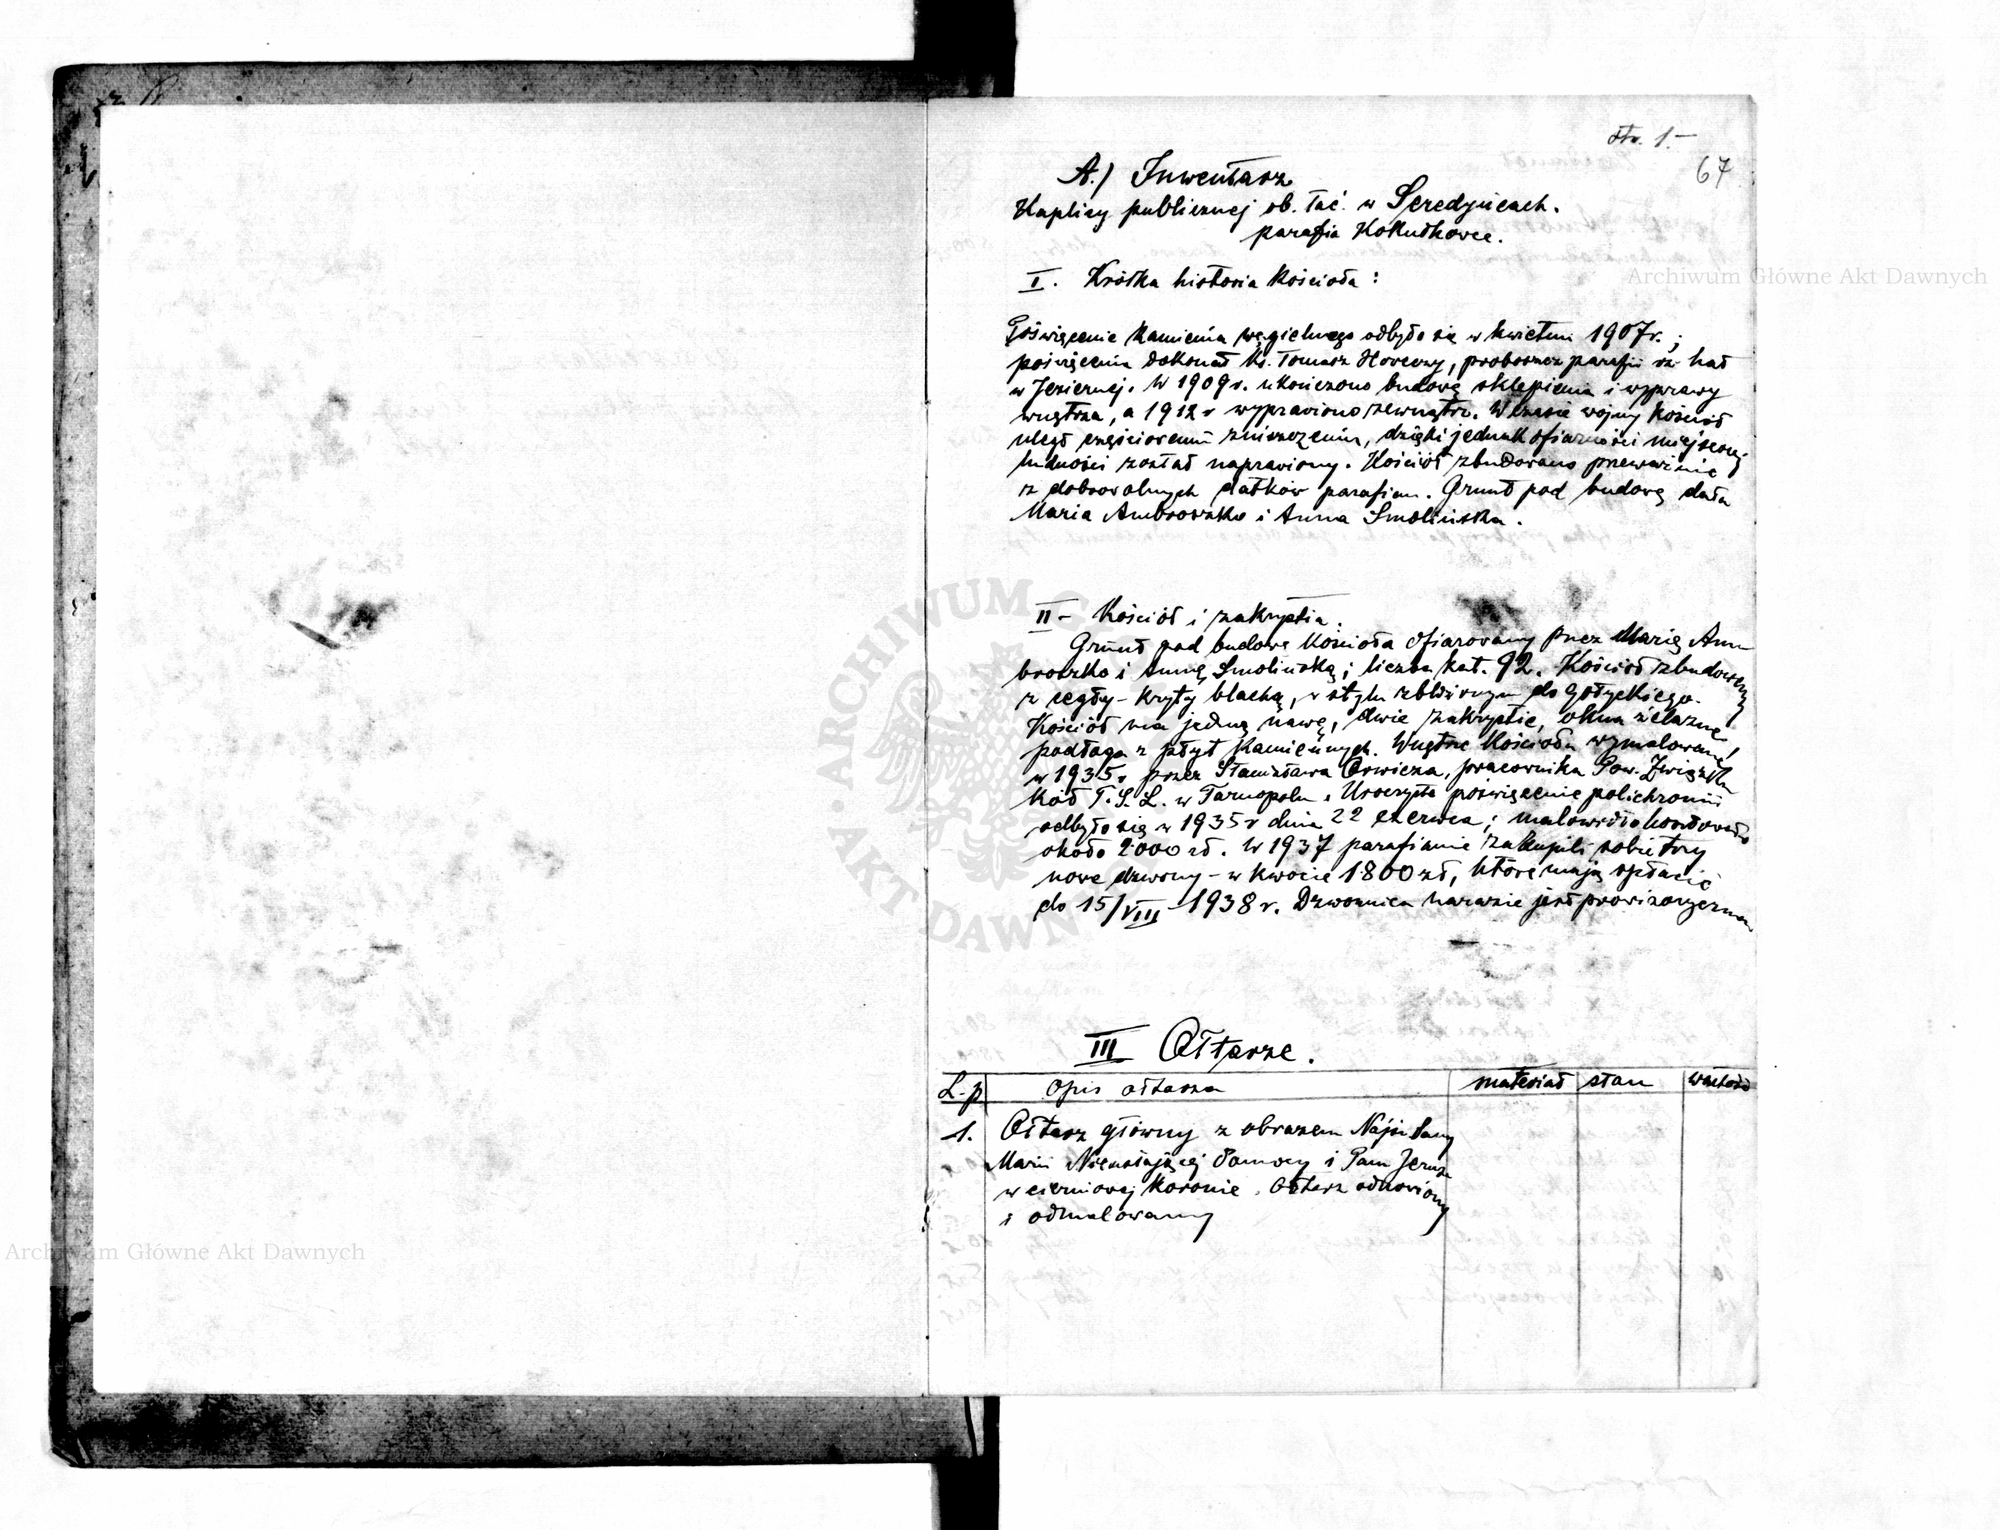 str. 1.-
67
A.) Inwentarz
Kaplicy publicznej ob. łać. w Seredyńcach.
parafia Kokutkowce.
I. Krótka historia kościoła:
Poświęcenie kamienia węgielnego odbyło się w kwietniu 1907 r.;
poświęcenia dokonał ks. Tomasz Horeczy, proboszcz parafii rz. kat
w Jeziernej. W 1909 r. ukończono budowę sklepienia i wyprawy
wnętrza, a 1912 r wyprawiono zewnątrz. W czasie wojny kościół
uległ częściowemu zniszczeniu, dzięki jednak ofiarności miejscowej
ludności został naprawiony. Kościół zbudowano przeważnie
z dobrowolnych datków parafian. Grunt pod budowę dała
Maria Ambroszko i Anna Smolińska.
II - Kościół i zakrystia.
Grunt pod budowę kościoła ofiarowany przez Marię Am
broszko i Annę Smolińską; liczba kat. 92. Kościół zbudowany
z cegły - kryty blachą, w stylu zbliżonym do gotyckiego.
Kościół ma jedną nawę, dwie zakrystie, okna żelazne,
podłoga z płyt kamiennych. Wnętrze kościoła wymalowane
w 1935 r przez Stanisława Orwicza, pracownika Pow. Związku
Kół T.S.L. w Tarnopolu. Uroczyste poświęcenie polichromii
odbyło się w 1935 r dnia 22 czerwca; malowidło kosztowało
około 2000 zł. W 1937 parafianie zakupili sobie trzy
nowe dzwony - w kwocie 1800 zł, które mają spłacić
do 15/VIII - 1938 r. Dzwonnica narazie jest prowizoryczna
III Ołtarze.
L.p. Opis ołtarza materiał stan wartość
1. Ołtarz główny z obrazem Najśw Panny
Marii Nieustającej Pomocy i Pana Jezusa
w cierniowej koronie. Ołtarz odnowiony
i odmalowany
Archiwum Główne Akt Dawnych
Archiwum Główne Akt Dawnych
ARCHIWUM
AKT DAWN